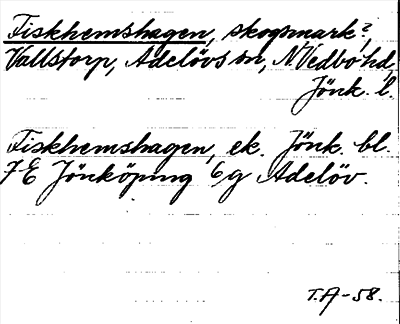 Fiskhemshagen, skogsmark?,
Vallstorp, Adelövs sn, N Vedbo hd,
Jönk. l.
Fiskhemshagen, ek. Jönk. bl.
7E Jönköping 6g Adelöv.
T.A-58.